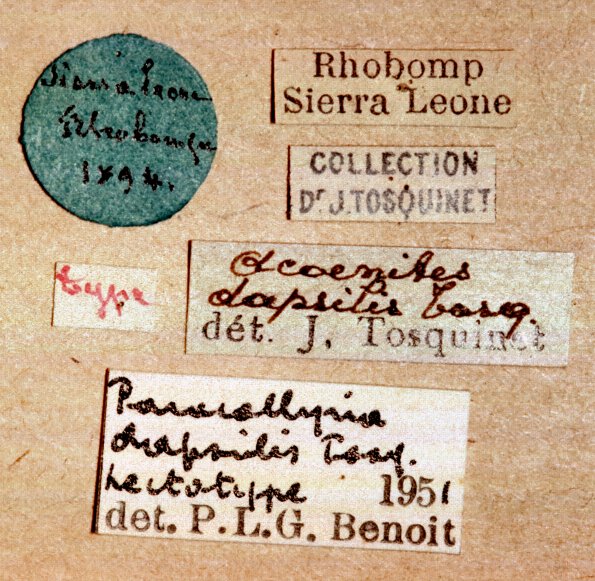 Sierra Leone
Rhobomp
1894.
Rhobomp
Sierra Leone
COLLECTION
Dr J. TOSQUINET
type
Acoenites
dapsilis Tosq.
dét. J. Tosquinet
Paracollyria
dapsilis Tosq.
Lectotype 1951
det. P.L.G. Benoit